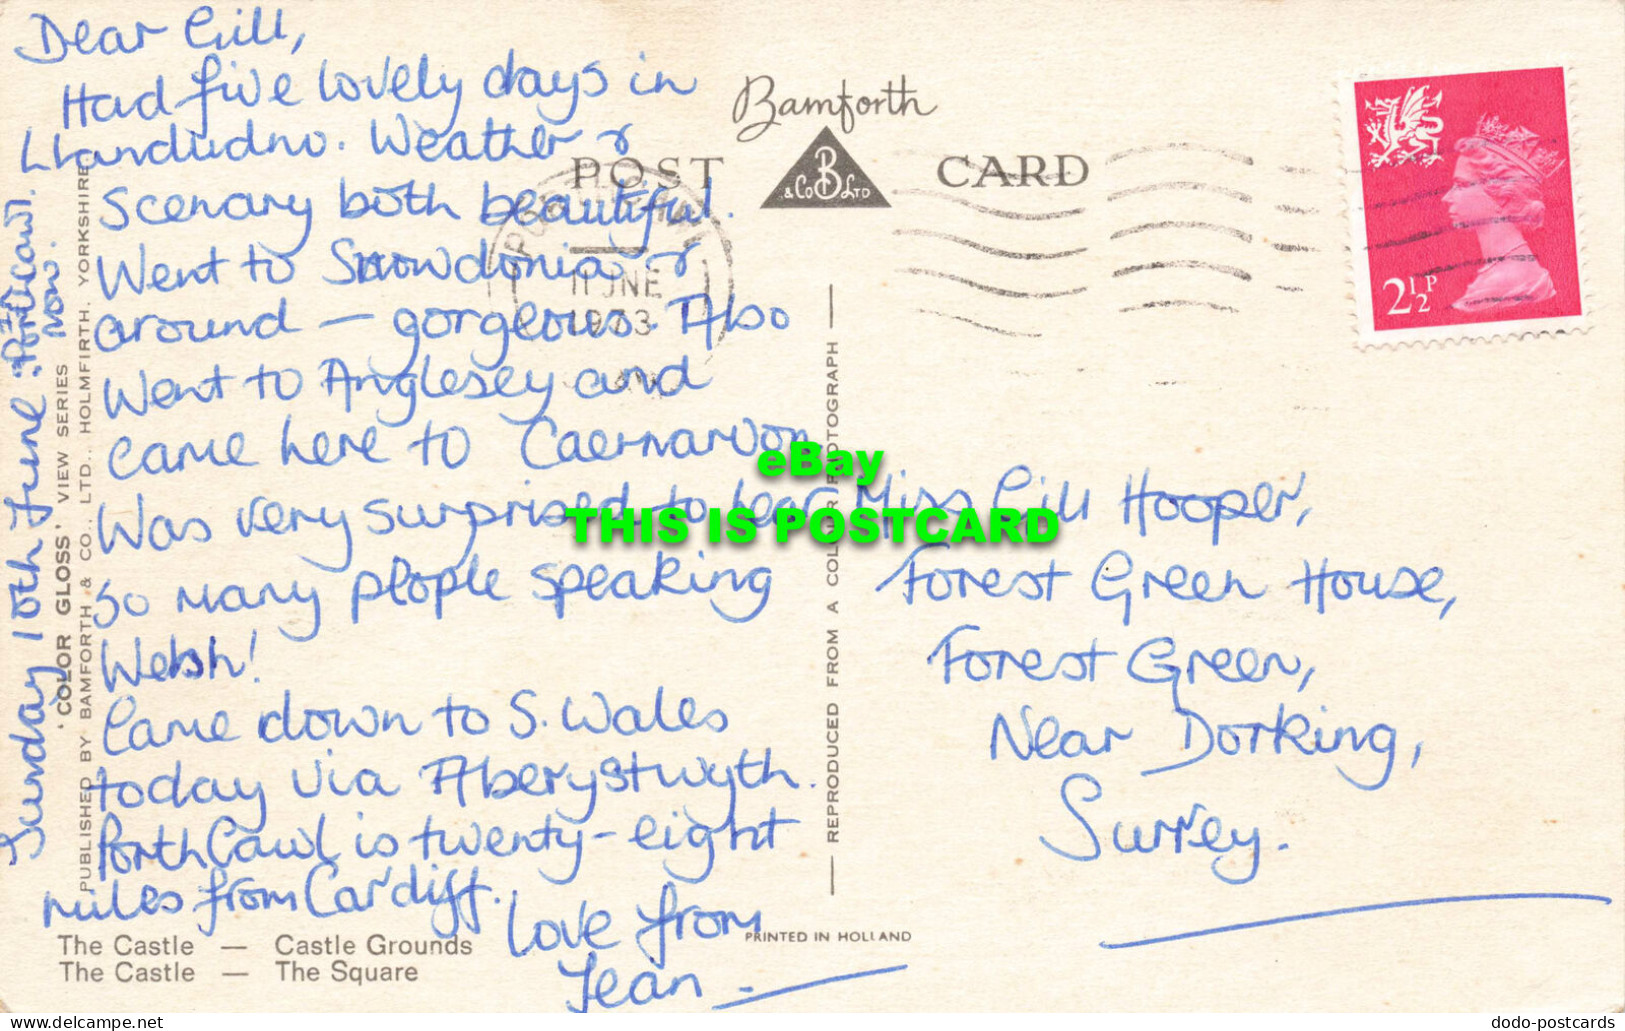 Dear Gill,
Had five lovely days in
Llandudno. Weather &
scenary both beautiful.
Went to Snowdonia &
around — gorgeous. Also
went to Anglesey and
came here to Caernarvon.
Was very surprised to hear
so many people speaking
Welsh!
Came down to S. Wales
today via Aberystwyth.
PorthCawl is twenty-eight
miles from Cardiff.
Love from
Jean
Sunday 10th June
PorthCawl
now.
'COLOR GLOSS' VIEW SERIES
PUBLISHED BY BAMFORTH & CO., LTD., HOLMFIRTH, YORKSHIRE
The Castle — Castle Grounds
The Castle — The Square
Bamforth
POST CARD
B
& Co LTD
11 JNE
1973
2½P
— REPRODUCED FROM A COLOUR PHOTOGRAPH —
PRINTED IN HOLLAND
Miss Gill Hooper,
Forest Green House,
Forest Green,
Near Dorking,
Surrey.
eBay
THIS IS POSTCARD
delcampe.net
dodo-postcards